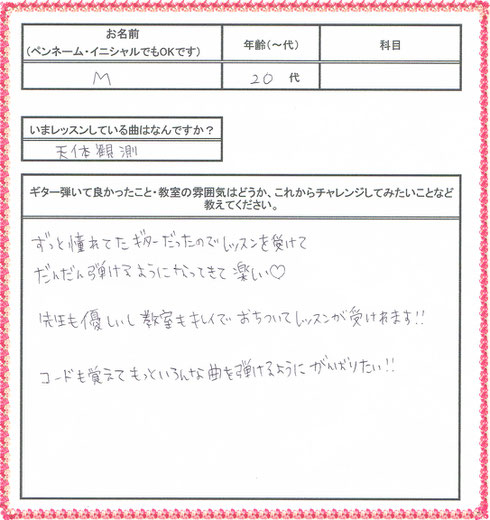 お名前
(ペンネーム・イニシャルでもOKです)
年齢(~代)
科目
M
20 代
いまレッスンしている曲はなんですか?
天体観測
ギター弾いて良かったこと・教室の雰囲気はどうか、これからチャレンジしてみたいことなど
教えてください。
ずっと憧れてたギターだったのでレッスンを受けて
だんだん弾けるようになってきて楽しい♡
先生も優しいし教室もキレイでおちついてレッスンが受けれます!!
コードも覚えてもっといろんな曲を弾けるようにがんばりたい!!